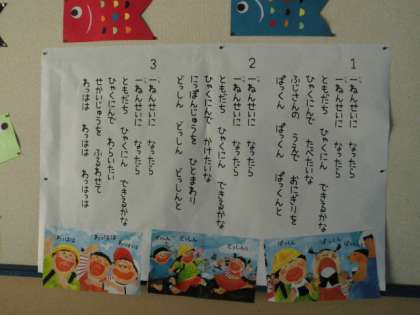 1
一ねんせいに なったら
一ねんせいに なったら
ともだち ひゃくにん できるかな
ひゃくにんで たべたいな
ふじさんの うえで おにぎりを
ぱっくん ぱっくん ぱっくんと
2
一ねんせいに なったら
一ねんせいに なったら
ともだち ひゃくにん できるかな
ひゃくにんで かけたいな
にっぽんじゅうを ひとまわり
どっしん どっしん どっしんと
3
一ねんせいに なったら
一ねんせいに なったら
ともだち ひゃくにん できるかな
ひゃくにんで わらいたい
せかいじゅうを ふるわせて
わっはは わっはは わっはっは
ぱっくん
ぱっくん
ぱっくん
どっしん
どっしん
わっはは
わっはは